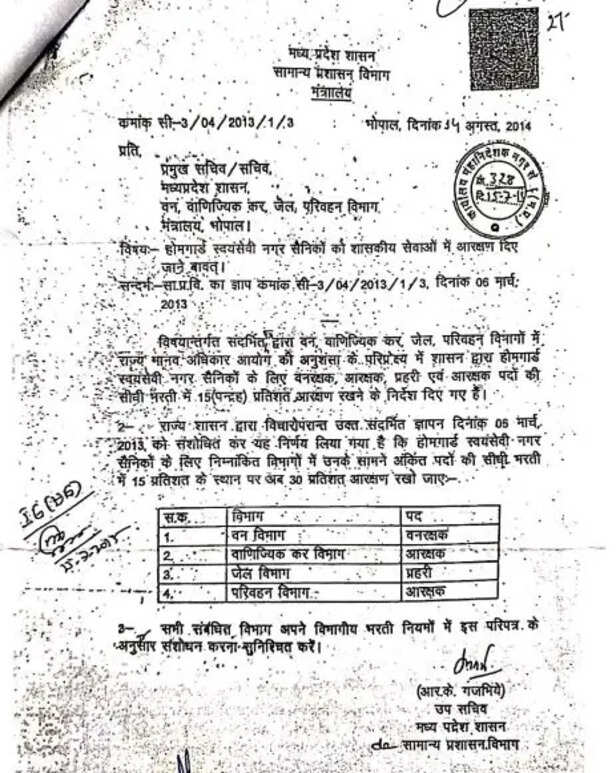 27
मध्य प्रदेश शासन
सामान्य प्रशासन विभाग
मंत्रालय
कमांक सी-3/04/2013/1/3 : भोपाल, दिनांक 14 अगस्त, 2014
प्रति,
प्रमुख सचिव/सचिव,
मध्यप्रदेश शासन,
वन, वाणिज्यिक कर, जेल, परिवहन विभाग
मंत्रालय, भोपाल।
328
विषयः- होमगार्ड स्वयंसेवी नगर सैनिकों को शासकीय सेवाओं में आरक्षण दिए
जाने बावत्।
सन्दर्भः-सा.प्र.वि. का ज्ञाप कमांक सी-3/04/2013/1/3, दिनांक 06 मार्च,
2013
विषयान्तर्गत संदर्भित द्वारा वन, वाणिज्यिक कर, जेल, परिवहन विभागों में
राज्य मानव अधिकार आयोग की अनुशंसा के परिप्रेक्ष्य में शासन द्वारा होमगार्ड
स्वयंसेवी नगर सैनिकों के लिए वनरक्षक, आरक्षक, प्रहरी एवं आरक्षक पदों की
सीधी भरती में 15(पन्द्रह) प्रतिशत आरक्षण रखने के निर्देश दिए गए हैं।
2- राज्य शासन द्वारा विचारोपरान्त उक्त संदर्भित ज्ञापन दिनांक 06 मार्च,
2013 को संशोधित कर यह निर्णय लिया गया है कि होमगार्ड स्वयंसेवी नगर
सैनिकों के लिए निम्नांकित विभागों में उनके सामने अंकित पदों की सीधी भरती
में 15 प्रतिशत के स्थान पर अब 30 प्रतिशत आरक्षण रखा जाएः-
स.क. विभाग पद
1. वन विभाग वनरक्षक
2. वाणिज्यिक कर विभाग आरक्षक
3. जेल विभाग प्रहरी
4. परिवहन विभाग आरक्षक
3- सभी संबंधित विभाग अपने विभागीय भरती नियमों में इस परिपत्र के
अनुसार संशोधन करना सुनिश्चित करें।
(आर.के. गजभिये)
उप सचिव
मध्य प्रदेश शासन
सामान्य प्रशासन विभाग